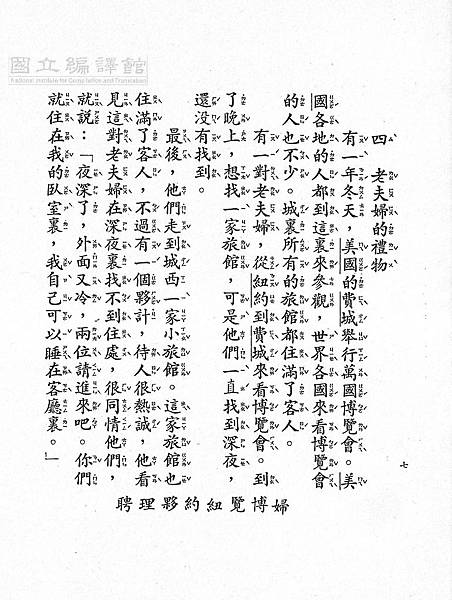 國立編譯館
National Institute for Compilation and Translation
四、老夫婦的禮物
有一年冬天，美國的費城舉行萬國博覽會。美
國各地的人都到這裏來參觀，世界各國來看博覽會
的人也不少。城裏所有的旅館都住滿了客人。
有一對老夫婦，從紐約到費城來看博覽會。到
了晚上，想找一家旅館，可是他們一直找到深夜，
還沒有找到。
最後，他們走到城西一家小旅館。這家旅館也
住滿了客人，不過有一個夥計，待人很熱誠，他看
見這對老夫婦在深夜裏找不到住處，很同情他們，
就說：「夜深了，外面又冷，兩位請進來吧。你們
就住在我的臥室裏，我自己可以睡在客廳裏。」
婦博覽紐約夥理聘
七